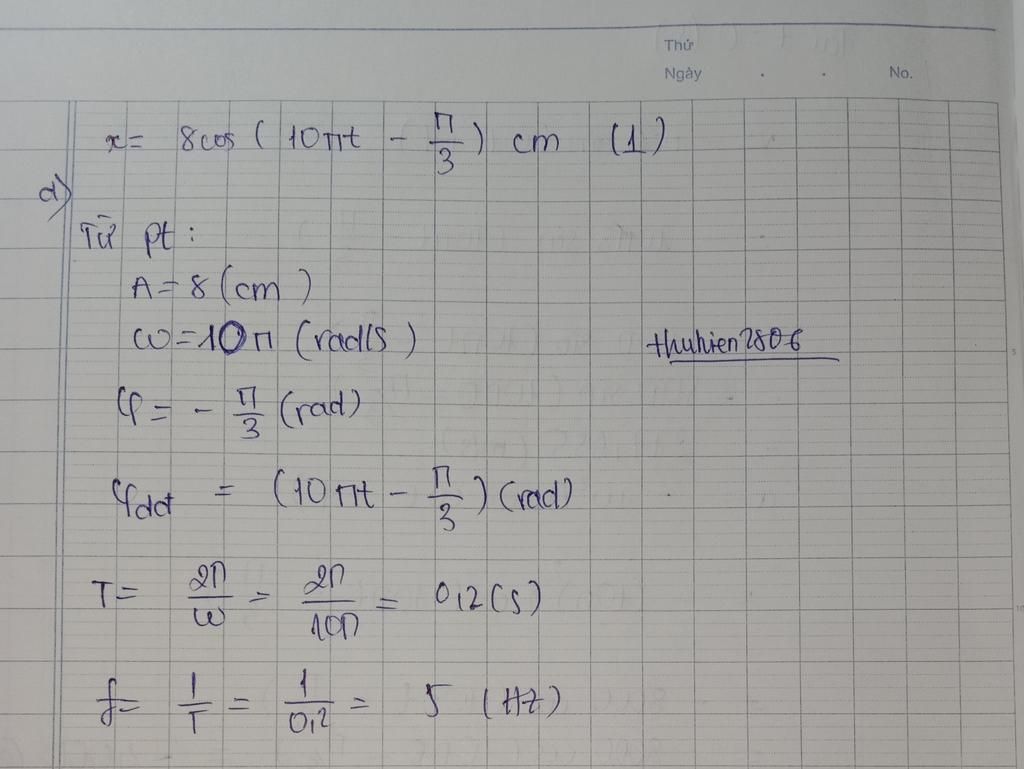 Thứ
Ngày . . No.
x = 8cos (10πt - π/3) cm (1)
a)
Từ pt :
A = 8 (cm)
ω = 10π (rad/s)
thuhien2806
φ = - π/3 (rad)
φdđ = (10πt - π/3) (rad)
T = 2π/ω = 2π/10π = 0,2 (s)
f = 1/T = 1/0,2 = 5 (Hz)